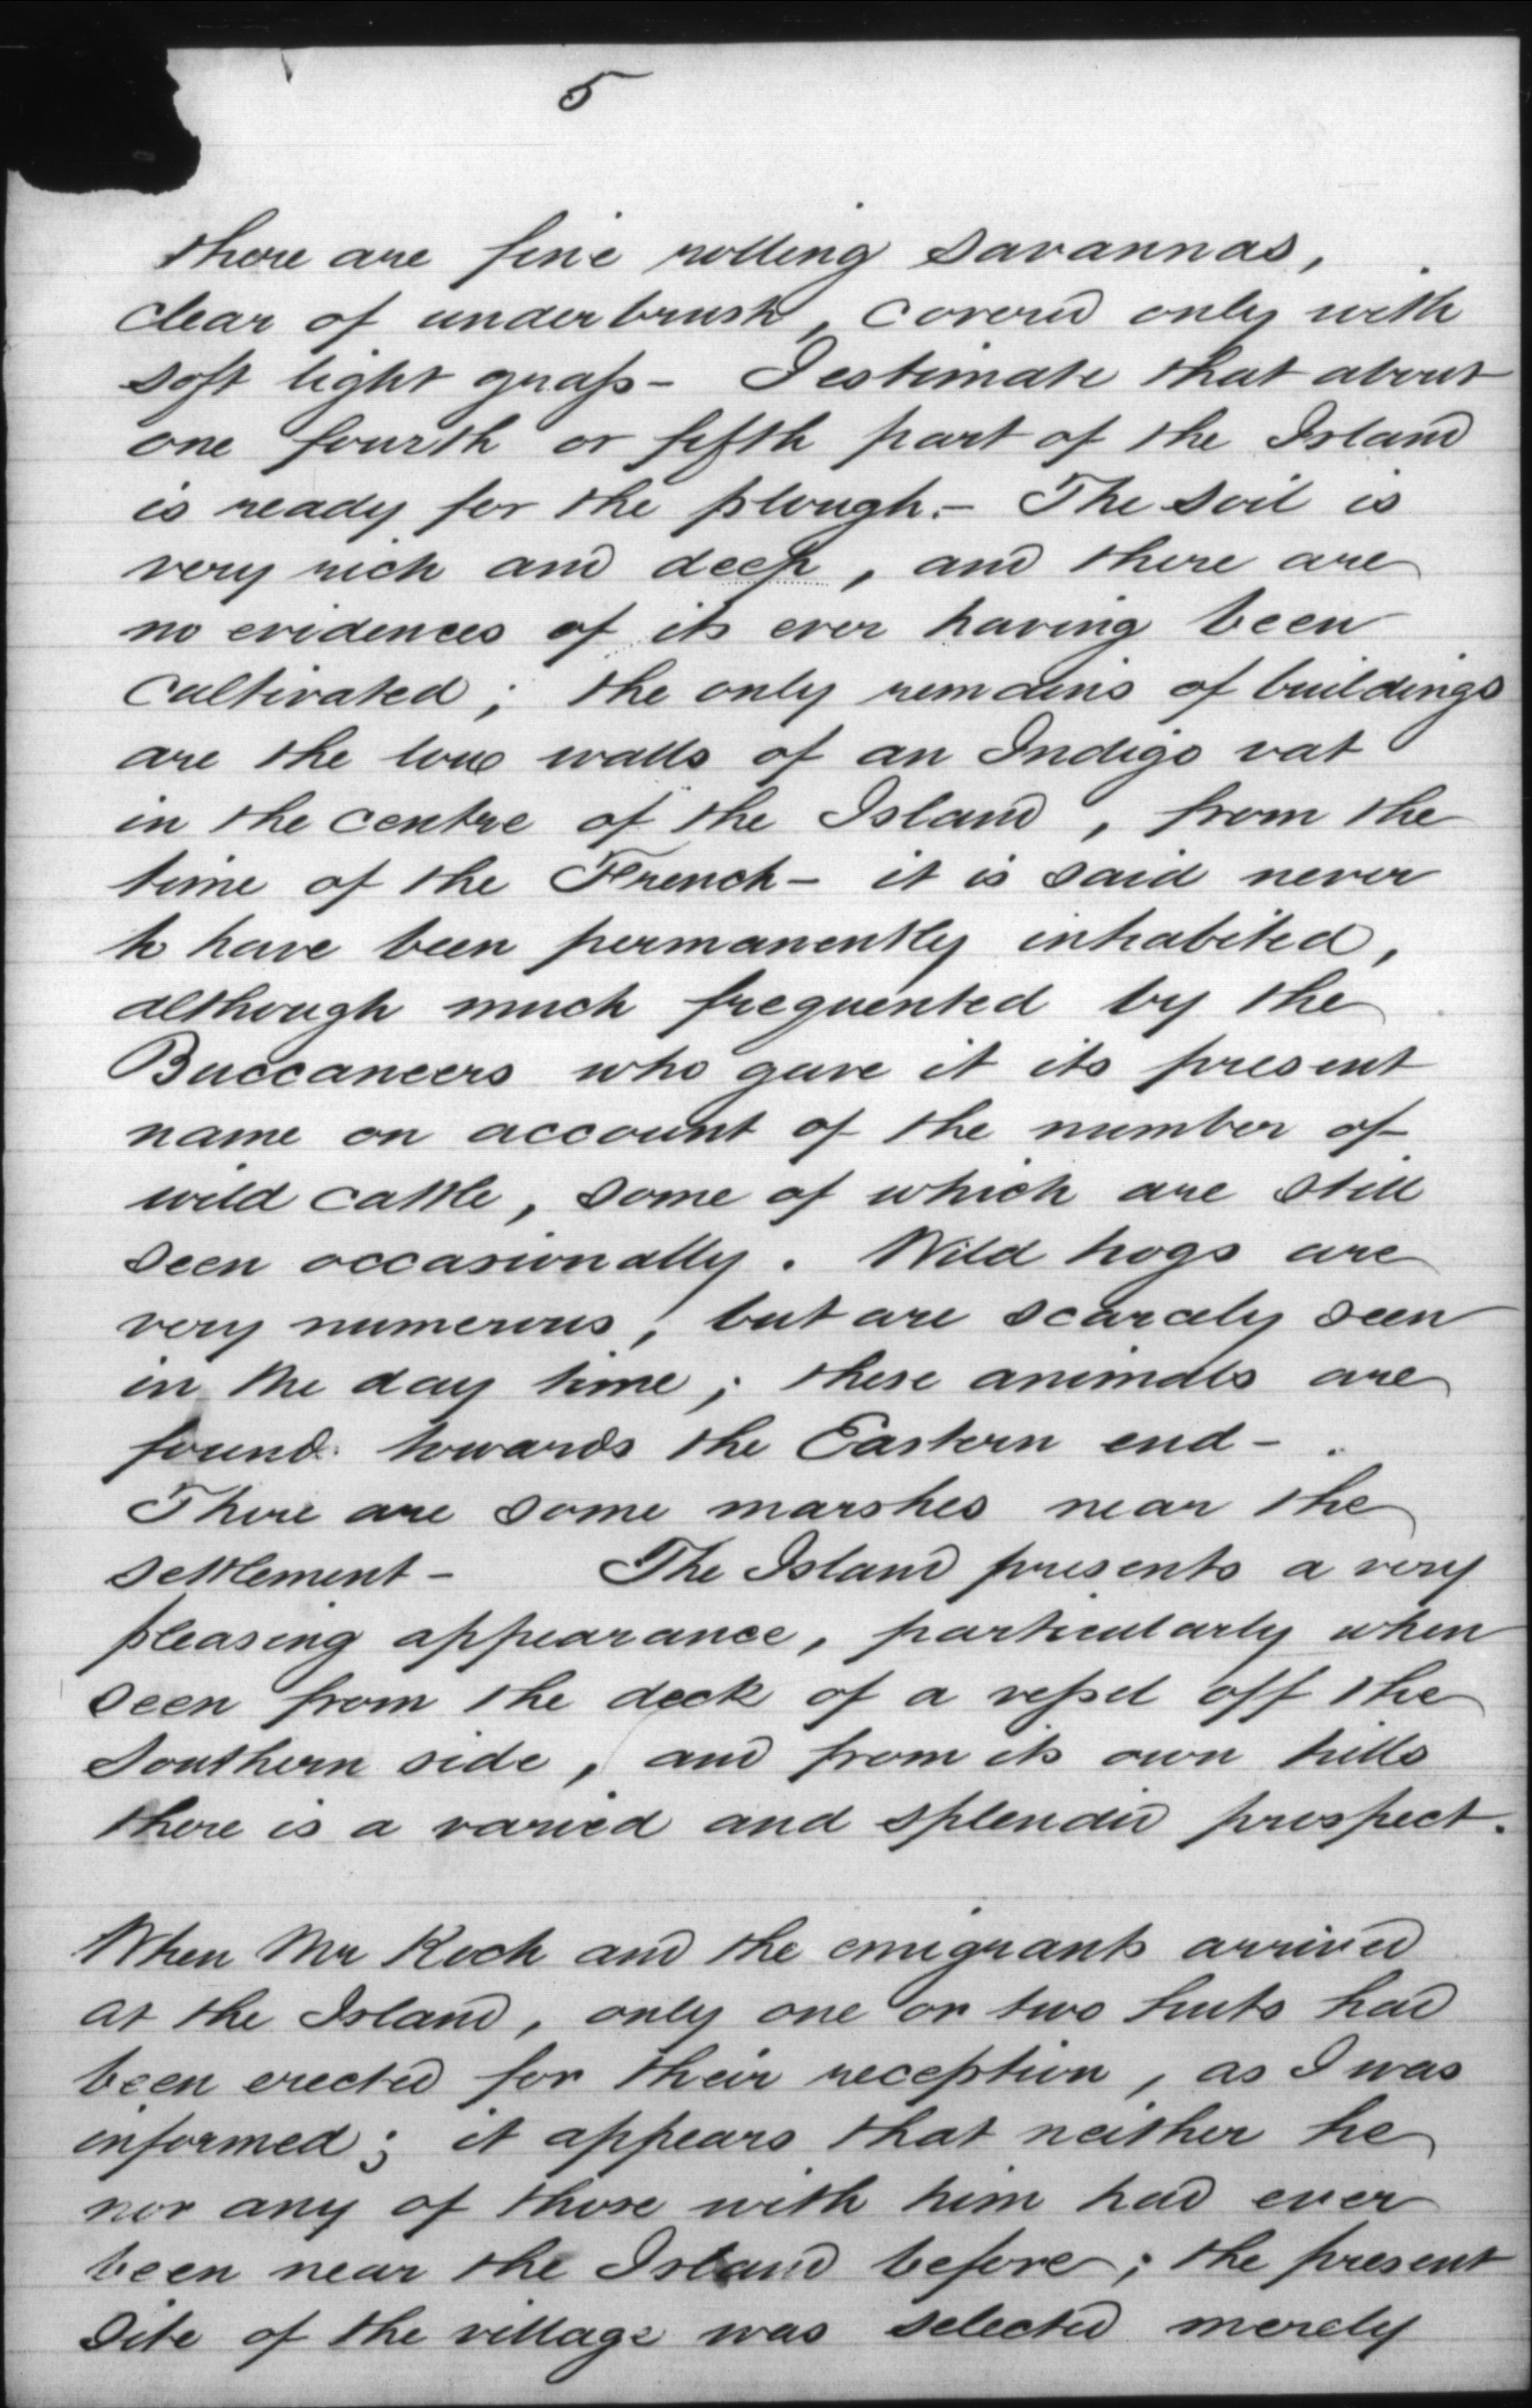 5
there are fine rolling savannas,
clear of underbrush, covered only with
soft light grass - I estimate that about
one fourth or fifth part of the Island
is ready for the plough. - The soil is
very rich and deep, and there are
no evidences of its ever having been
cultivated; the only remains of buildings
are the low walls of an Indigo vat
in the centre of the Island, from the
time of the French - it is said never
to have been permanently inhabited,
although much frequented by the
Buccaneers who gave it its present
name on account of the number of
wild cattle, some of which are still
seen occasionally. Wild hogs are
very numerous, but are scarcely seen
in the day time; these animals are
found towards the Eastern end -
There are some marshes near the
settlement - The Island presents a very
pleasing appearance, particularly when
seen from the deck of a vessel off the
Southern side, and from its own hills
there is a varied and splendid prospect.
When Mr Kock and the emigrants arrived
at the Island, only one or two huts had
been erected for their reception, as I was
informed; it appears that neither he
nor any of those with him had ever
been near the Island before; the present
site of the village was selected merely